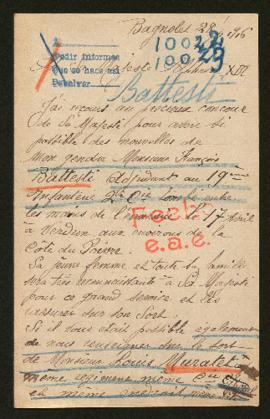 Bagnolet 28/ /916
10022
10023
Pedir informes
Que se haga así
Devolver
Alphonse XIII
Battesti
J'ai recours au précieux concours
de Sa Majesté pour avoir si
possible des nouvelles de
Mon gendre Monsieur François
Battesti Adjudant au 19eme
Infanterie 2e Cie tombé entre
les mains de l'ennemi le 17 Avril
à Verdun aux environs de la
Côte du Poivre.
Fecho
e.a.e.
Sa jeune femme et toute sa famille
sera très reconnaissante à Sa Majesté
pour ce grand service et d'être
rassurés sur son sort.
Si il vous était possible également
de nous renseigner sur le sort
de Monsieur Louis Muratet
même régiment même Cie
et même